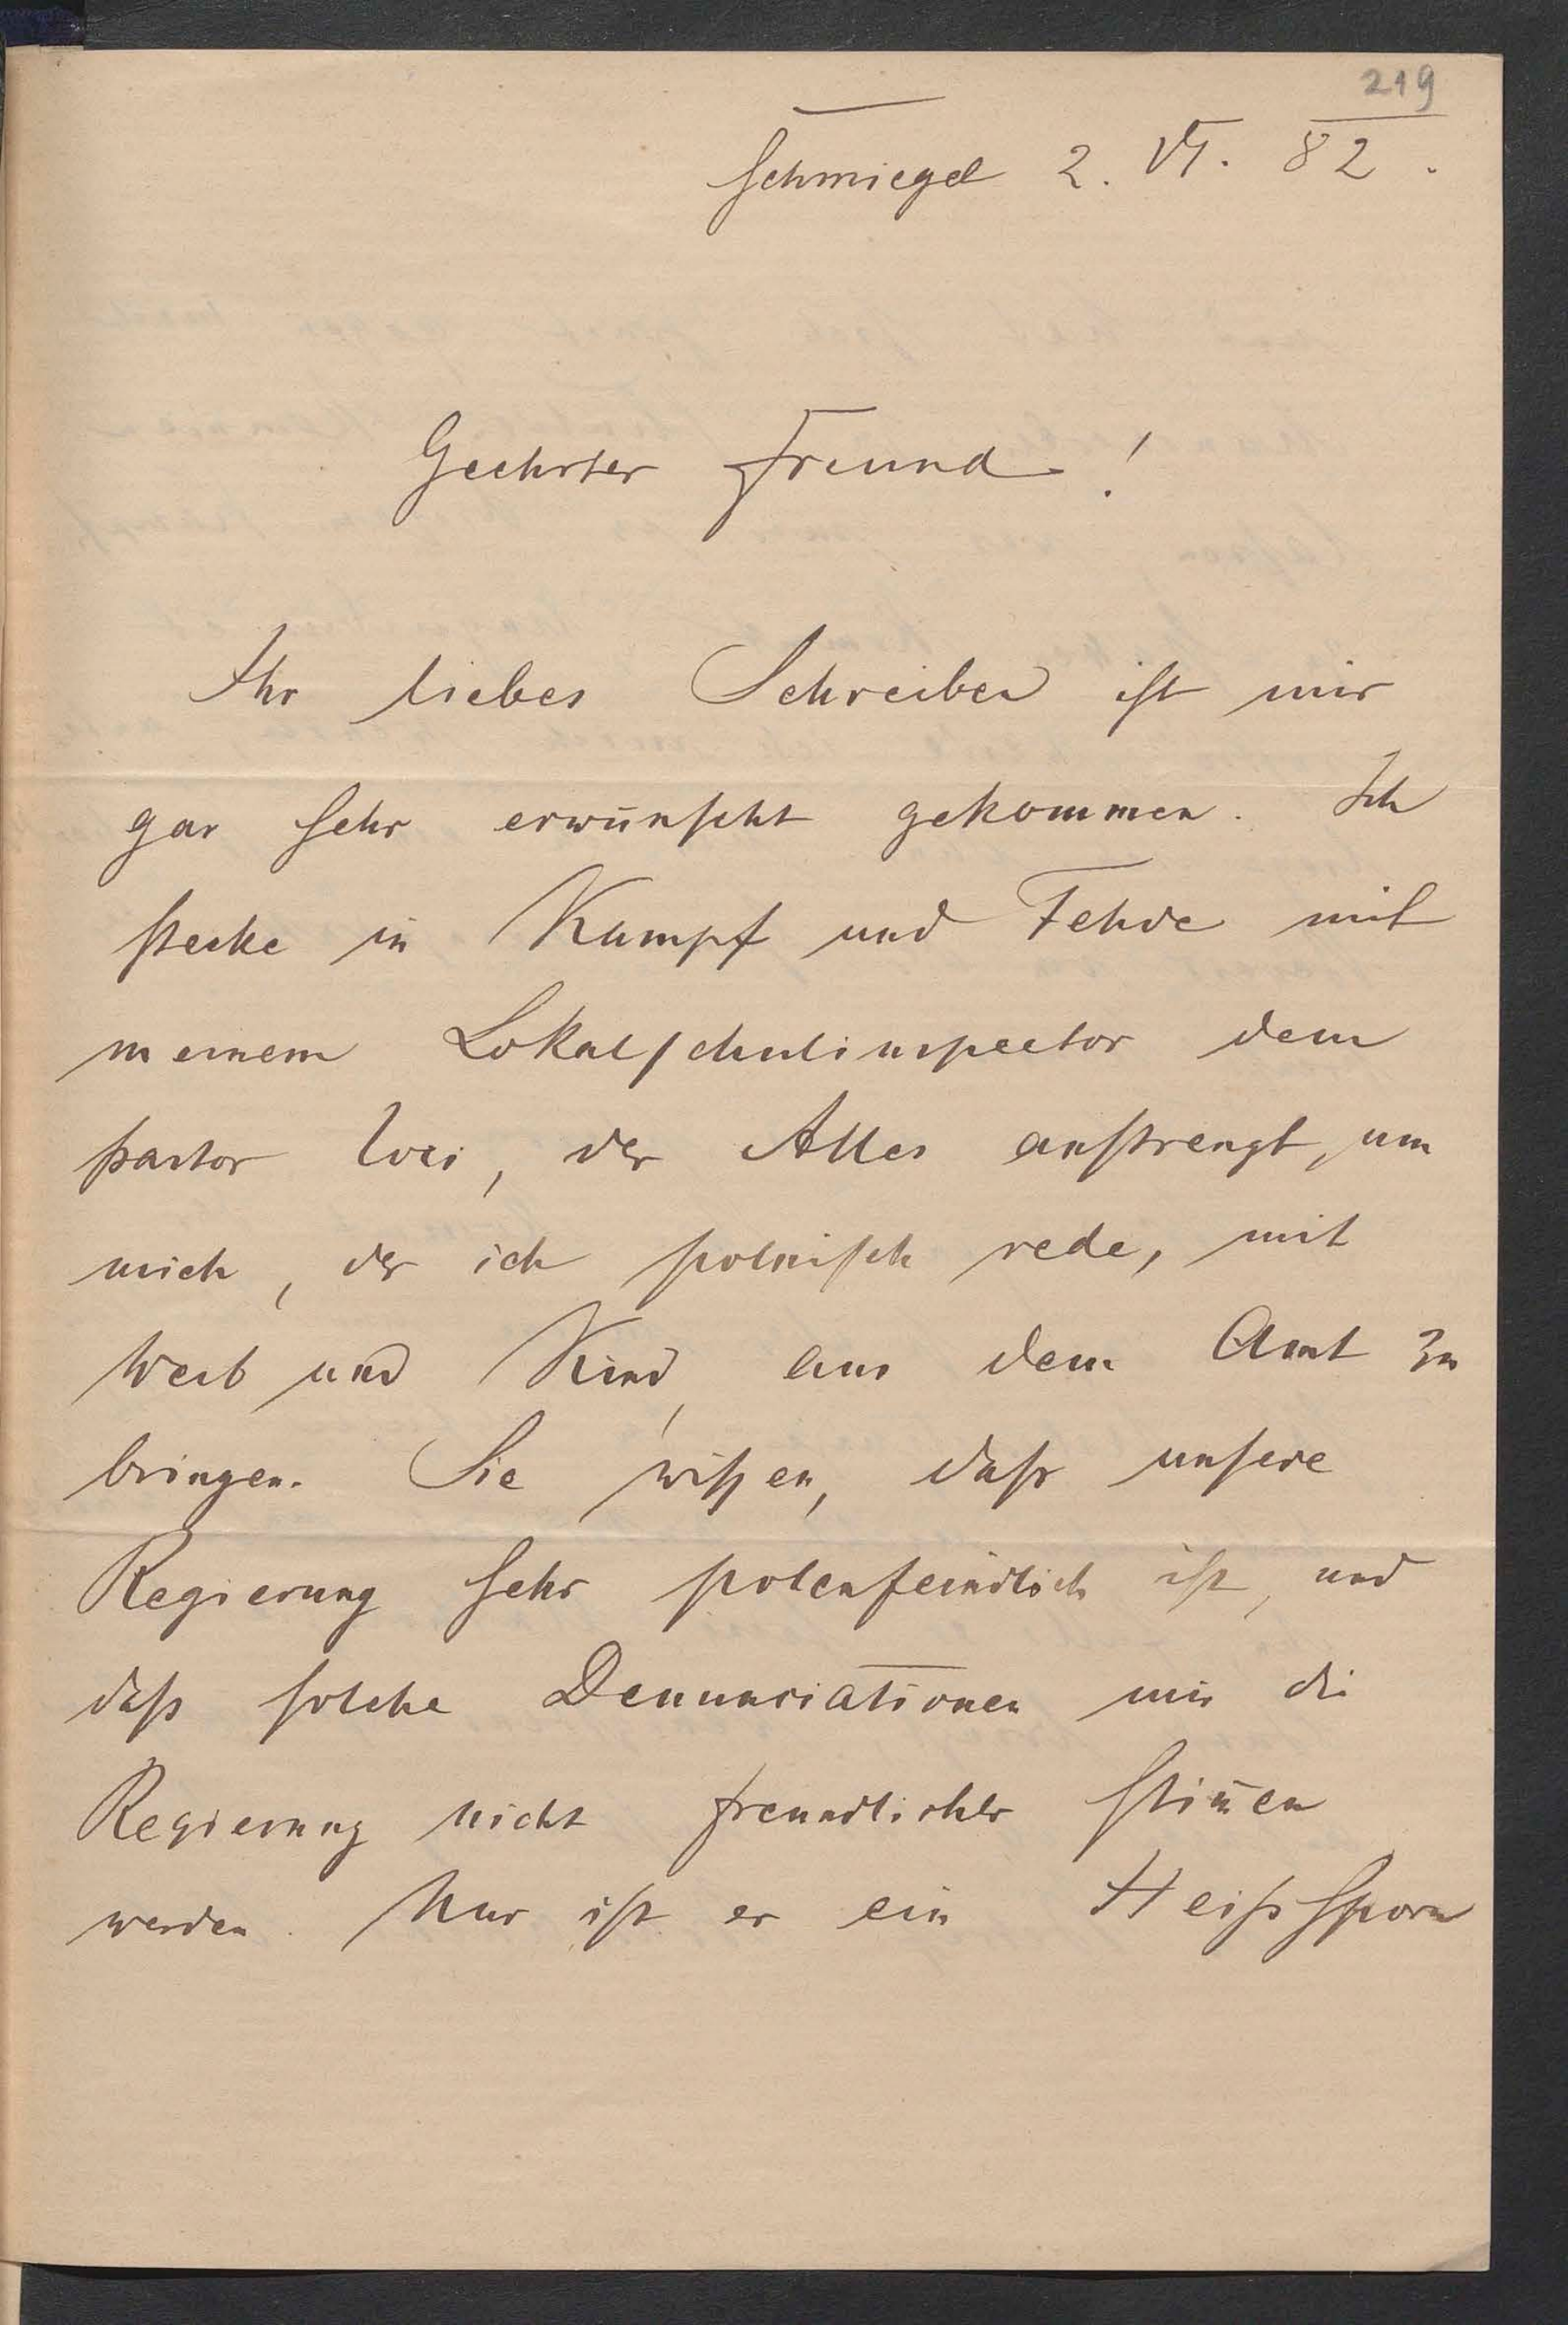 219
Schmiegel 2. VI. 82.
Geehrter Freund!
Ihr liebes Schreiben ist mir
gar sehr erwünscht gekommen. Ich
stecke in Kampf und Fehde mit
meinem Lokalschulinspector dem
Pastor , der Alles anstrengt, um
mich, der ich polnisch rede, mit
Weib und Kind, aus dem Amt zu
bringen. Sie wissen, dass unsere
Regierung sehr polenfeindlich ist, und
dass solche Denunciationen mir die
Regierung nicht freundlicher stim̄en
werden. Nur ist er ein Heisssporn